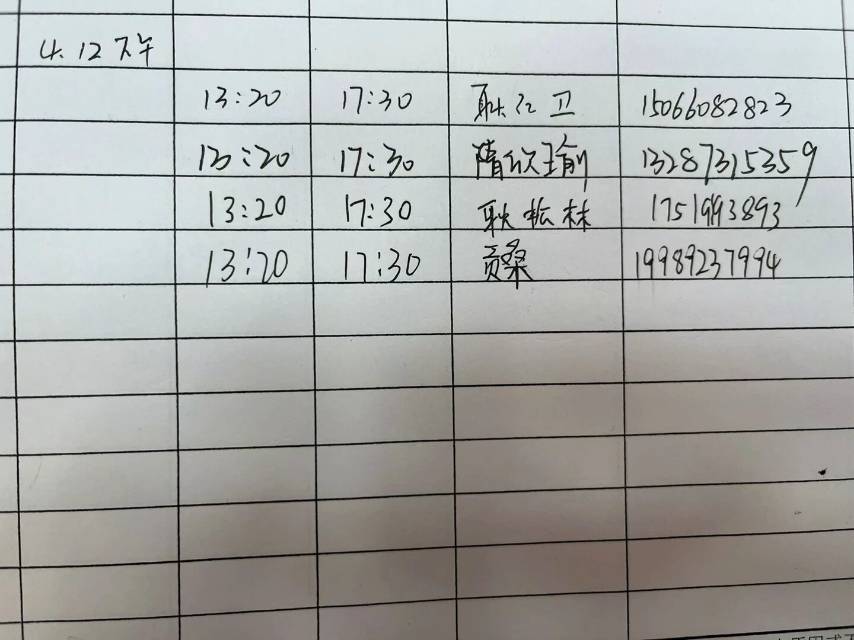 4.12 下午
13:20 17:30 耿红卫 15066082823
13:20 17:30 隋欣瑜 13287315359
13:20 17:30 耿松林 17519193893
13:20 17:30 19989237994